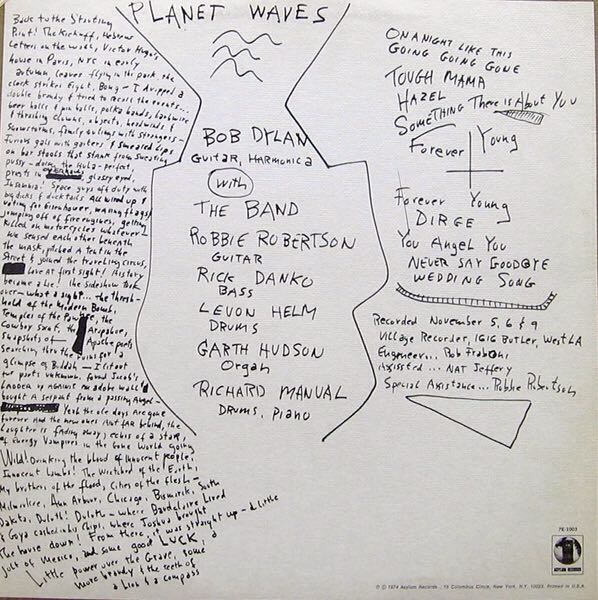 PLANET WAVES
Back to the Starting
Point! The Kickoff, Hebrew
Letters on the wall, Victor Hugo's
house in Paris, NYC in early
autumn, leaves flying in the park, the
clock strikes Eight, Bong - I dropped a
double brandy & tried to recall the events...
beer halls & pin balls, polka bands, barbwire
& thrashing clowns, objects, headwinds &
snowstorms, family outings with strangers -
Furious gals with garters & smeared lips
on bar stools that stank from sweating
pussy - doing the Hula - perfect,
priests in glassy eyed
Insomnia! Space guys off duty with
big dicks & ducktails All wired up &
voting for Eisenhower, waving flags &
jumping off of fire engines, getting
killed on motorcycles whatever -
We sensed each other beneath
the mask, pitched a tent in the
Street & joined the traveling circus,
Love at first sight! History
became a lie! the sideshow took
over - what a sight... the thresh-
hold of the Modern Bomb,
Temples of the Pawnee, the
Cowboy saint, the Arapahoe,
Snapshots of Apache poets
Searching thru the ruins for a
glimpse of Buddah - I lit out
for parts unknown, found Jacob's
Ladder up against an adobe wall &
bought A serpent from a passing Angel -
Yeah the ole days are gone
forever And the new ones Aint far behind, the
Laughter is fading away, echos of a star,
of Energy Vampires in the Gone World going
Wild! Drinking the blood of innocent people,
Innocent Lambs! The Wretched of the Earth,
My brothers of the flood, Cities of the flesh -
Milwaukee, Ann Arbour, Chicago, Bismarck, South
Dakota, Duluth! Duluth - where Baudelaire Lived
& Goya cashed in his chips, where Joshua brought
the house down! From there, it was straight up - a little
jolt of Mexico, and some good LUCK, a
Little power over the Grave, some
more brandy & the teeth of
a Lion & a compass
BOB DYLAN
GUITAR, HARMONICA
with
THE BAND
ROBBIE ROBERTSON
GUITAR
RICK DANKO
BASS
LEVON HELM
DRUMS
GARTH HUDSON
Organ
RICHARD MANUAL
DRUMS, PIANO
ON A NIGHT LIKE THIS
GOING GOING GONE
TOUGH MAMA
HAZEL
SOMETHING There is About You
Forever Young
Forever Young
DIRGE
You Angel You
NEVER SAY GOODBYE
WEDDING SONG
Recorded November 5, 6 & 9
Village Recorder, 1616 Butler, West LA
Engineer... Rob Fraboni
Assisted... NAT Jeffery
Special Assistance... Robbie Robertson
7E-1003
© ℗ 1974 Asylum Records, 15 Columbus Circle, New York, N.Y. 10023. Printed in U.S.A.